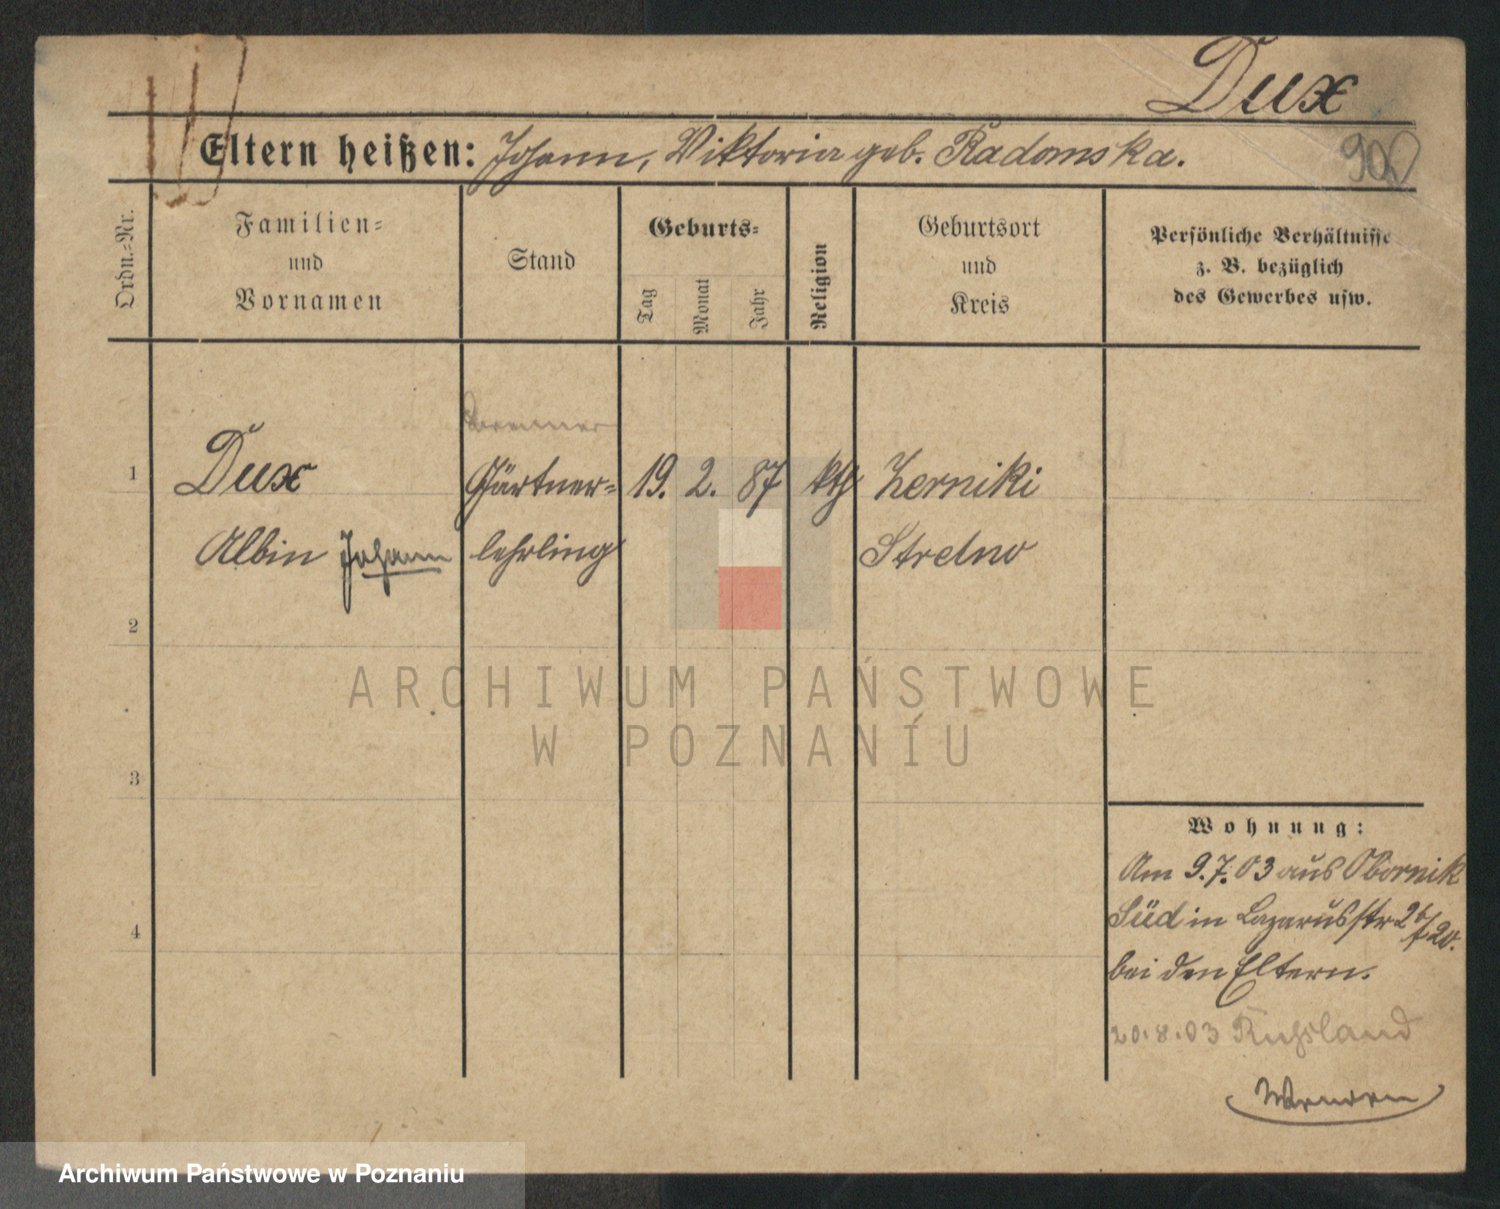 Dux
Eltern heißen: Johann, Viktoria geb. Radomska.
Ordn.=Nr.
Familien=
und
Vornamen
Stand
Geburts=
Tag
Monat
Jahr
Religion
Geburtsort
und
Kreis
Persönliche Verhältnisse
z. B. bezüglich
des Gewerbes usw.
1
Dux Gärtner= 19. 2. 87 kth Zerniki
Albin Johann lehrling Strelno
2
3
4
ARCHIWUM PAŃSTWOWE
W POZNANIU
Wohnung:
Am 9.7.03 aus Obornik
Süd in Lazarusstr 26/20.
bei den Eltern.
20.8.03 Russland
Archiwum Państwowe w Poznaniu